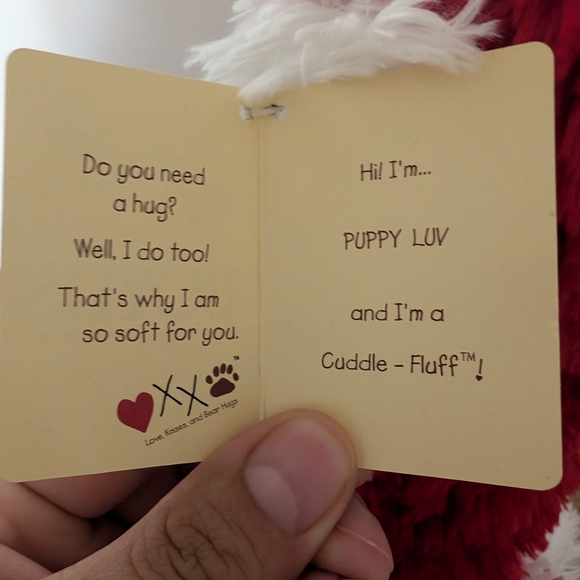 Do you need
a hug?
Well, I do too!
That's why I am
so soft for you.
XX
TM
Love, Kisses, and Bear Hugs
Hi! I'm...
PUPPY LUV
and I'm a
Cuddle - Fluff™!